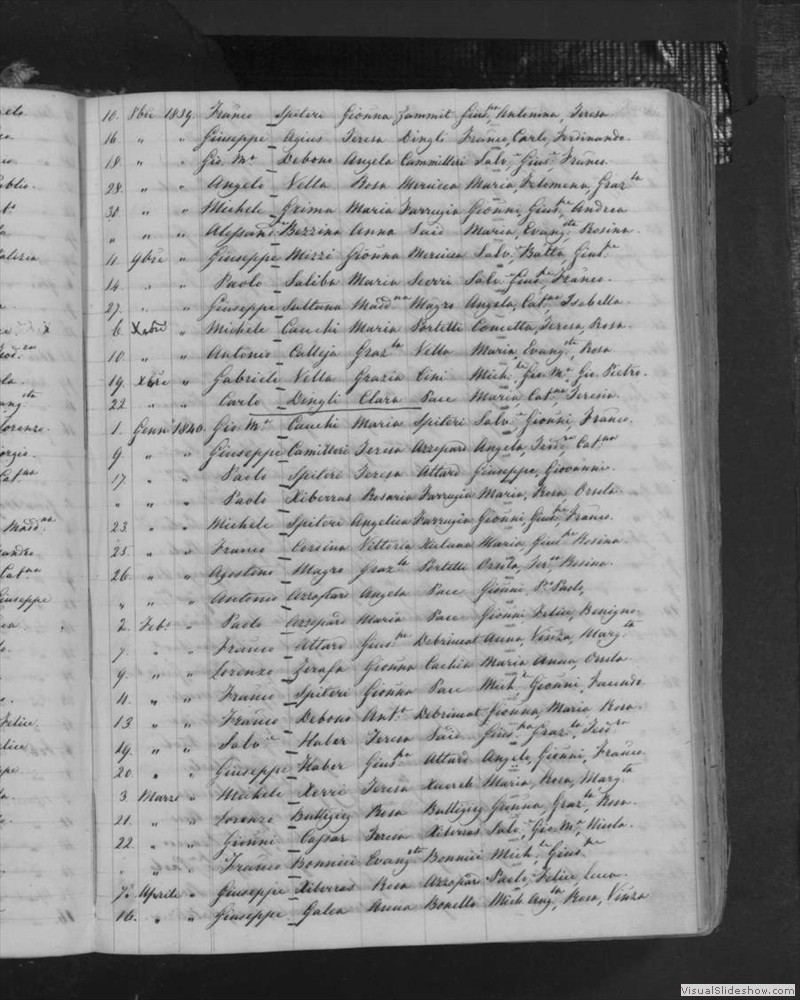 10. 8bre 1839 Franco Spiteri Gionna Zammit Gius.na Antonina, Teresa
16. " " Giuseppe Agius Teresa Dingli Franco, Carlo, Ferdinando
18. " " Gio. M.a Debono Angela Cammilleri Salv.e Gius.e Franco.
28. " " Angelo Vella Rosa Mercieca Maria, Filomena, Graz.la
30. " " Michele Grima Maria Farrugia Gionni, Gius.e Andrea
" " " Alessand.o Bezzina Anna Said Maria, Evang.sta Rosina.
11. 9bre " Giuseppe Mizzi Gionna Mercieca Salv.e Batta, Gius.e
14. " " Paolo Saliba Maria Sceri Salv.e Gius.e Franco.
27. " " Giuseppe Sultana Madd.na Magro Angela, Cat.na Isabella
6. Xbre " Michele Cauchi Maria Portelli Concetta, Teresa, Rosa.
10. " " Antonio Calleja Graz.la Vella Maria, Evang.sta, Rosa
19. Xbre " Gabriele Vella Grazia Cini Mich.le Gio. M.a Gio. Pietro.
22. " " Carlo Dingli Clara Pace Maria Cat.na Teresia.
1. Genn.o 1840. Gio. M.a Cauchi Maria Spiteri Salv.e Gionni, Franco.
9. " " Giuseppe Camilleri Teresa Azzopardi Angela, Cat.na
17. " " Paolo Spiteri Teresa Attard Giuseppe, Giovanni
" " " Paolo Xiberras Rosaria Farrugia Maria, Rosa Orsola.
23. " " Michele Spiteri Angelica Farrugia Gionni Gius.e Franco.
25. " " Franco Vittoria Maria Gius.a Rosina.
26. " " Agostino Magro Graz.la Portelli Orsola, Ter.sa Rosina.
" " " Antonio Azzopard Angela Pace Gionni, Paolo,
2. Feb.o " Paolo Azzopard Maria Pace Gionni Felice, Benigno.
7. " " Franco Attard Gius.na Debrincat Anna, Vinza, Marg.ta
9. " " Lorenzo Zerafa Gionna Cachia Maria Anna, Orsola
11. " " Franco Spiteri Gionna Pace Mich.e Gionni, Facondo
13. " " Franco Debono Ant.a Debrincat Gionna, Maria Rosa.
19. " " Salv.e Haber Teresa Said Gius.na Graz.la, Teod.ra
20. " " Giuseppe Haber Gius.na Attard Angelo, Gionni, Franco.
3. Marzo " Michele Xerri Teresa Xuereb Maria, Rosa, Marg.ta
21. " " Lorenzo Buttigieg Rosa Buttigieg Gionna, Graz.la, Rosa.
22. " " Gionni Cassar Teresa Xiberras Salv.e Gio. M.a, Nicola.
" " " Franco Bonnici Evang.sta Bonnici Mich.le Gius.e
7. Aprile " Giuseppe Xiberras Rosa Azzopar Paolo, Felice Luca.
16. " " Giuseppe Galea Anna Bonello Mich. Ang.lo, Rosa, Vinza
VisualSlideshow.com